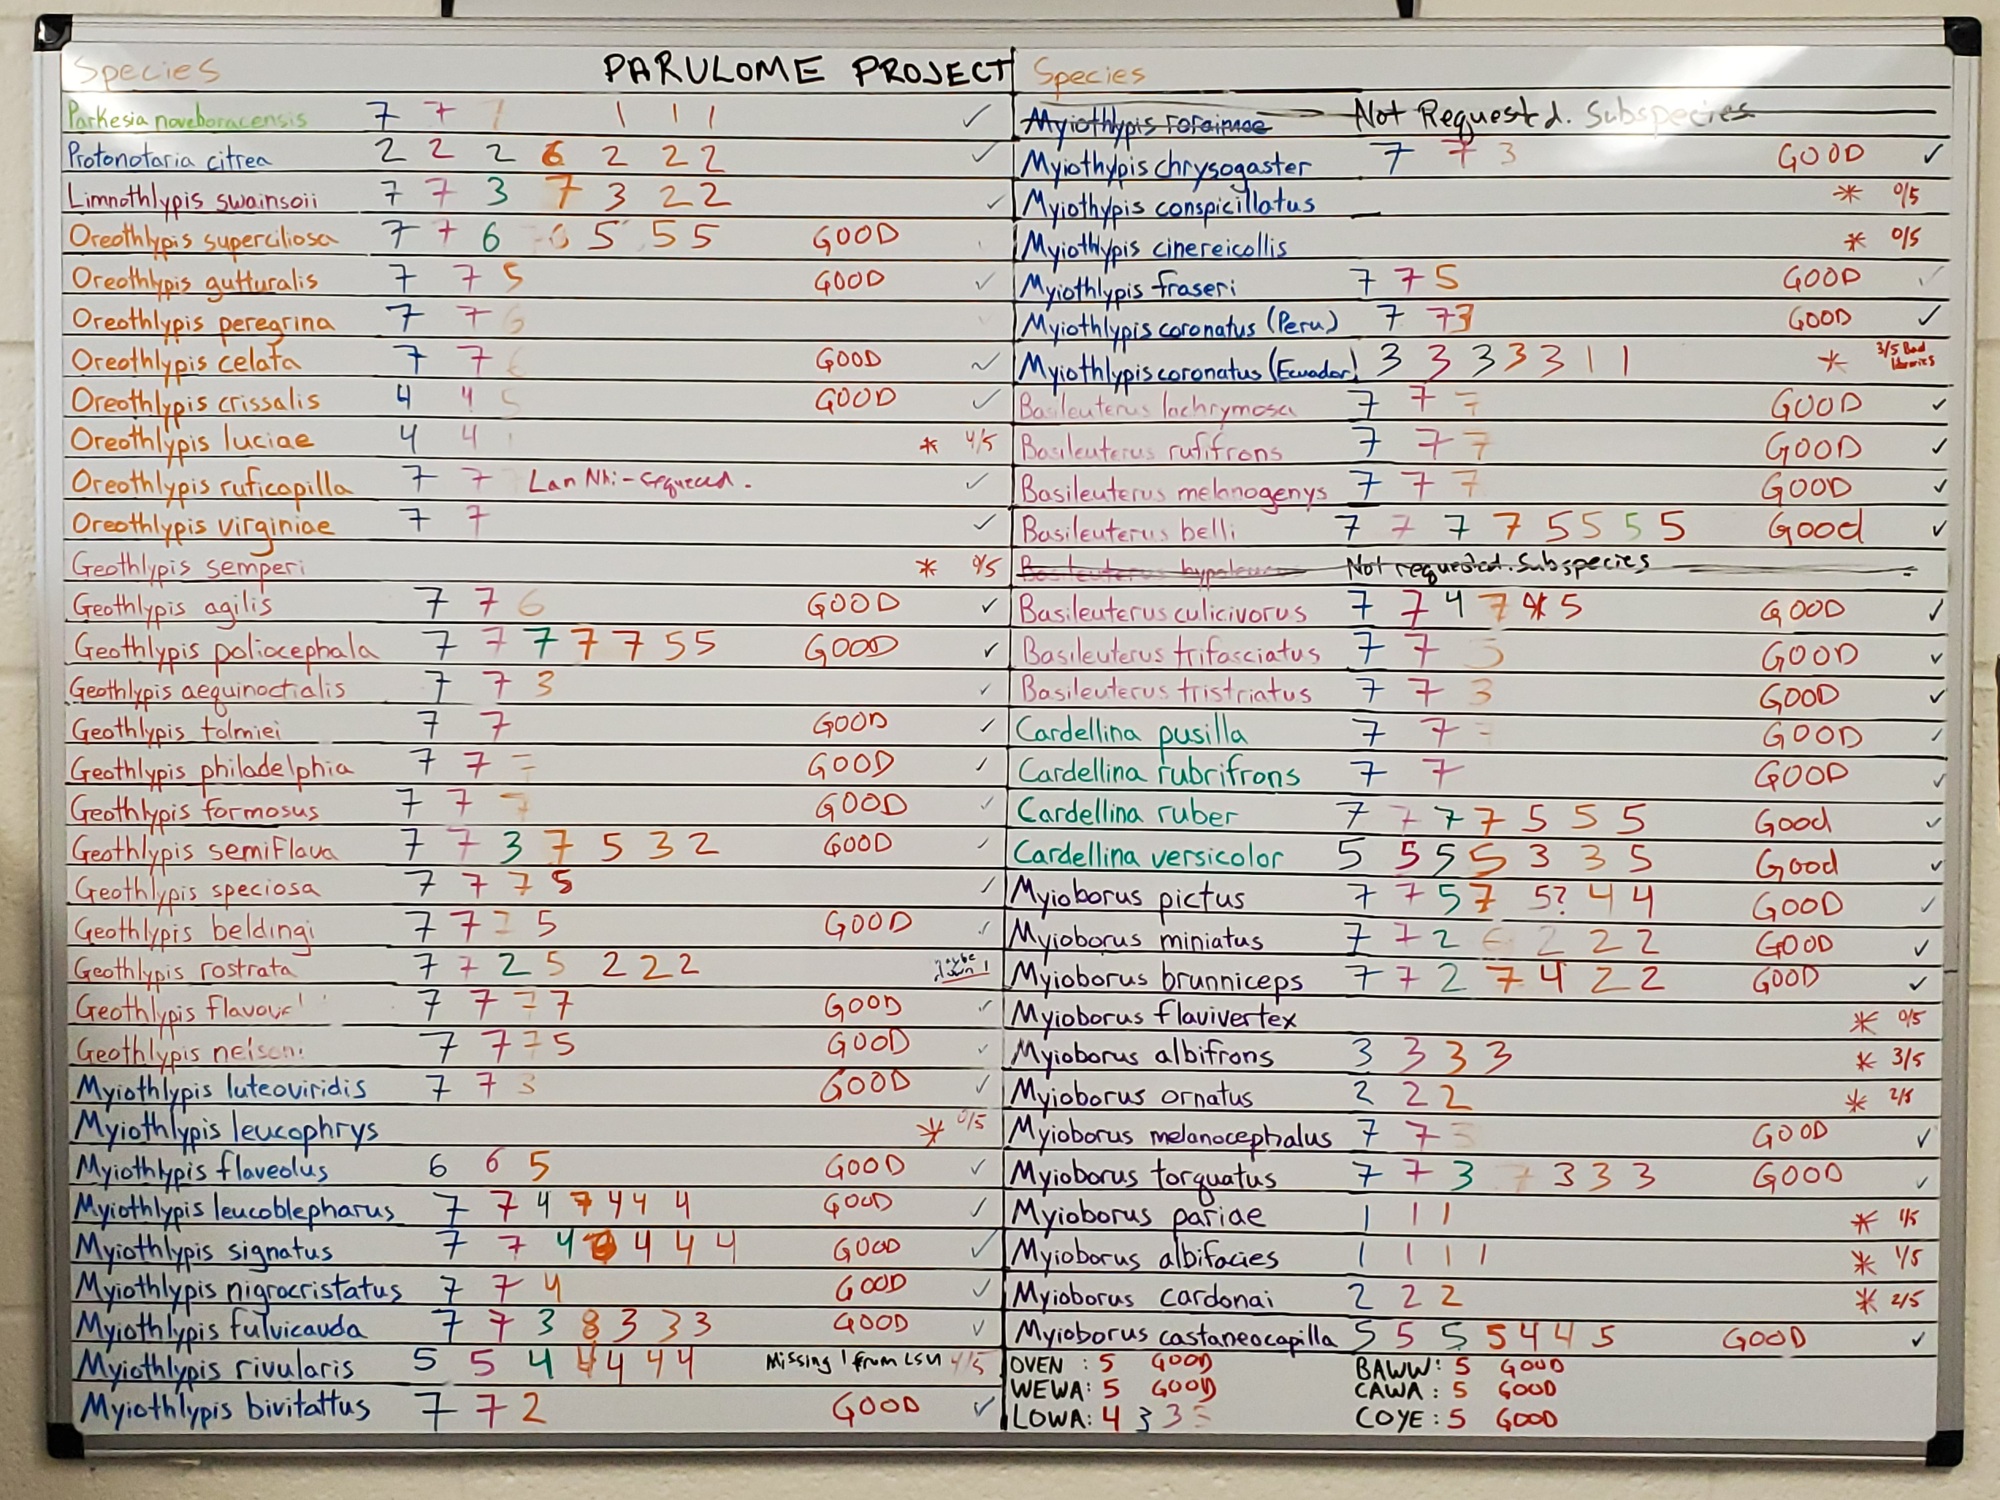 Species PARULOME PROJECT
Parkesia noveboracensis 7 7 1 1 1 1 ✓
Protonotaria citrea 2 2 2 6 2 2 2 ✓
Limnothlypis swainsoii 7 7 3 7 3 2 2 ✓
Oreothlypis superciliosa 7 7 6 6 5 5 5 GOOD
Oreothlypis gutturalis 7 7 5 GOOD ✓
Oreothlypis peregrina 7 7 6
Oreothlypis celata 7 7 6 GOOD ✓
Oreothlypis crissalis 4 4 5 GOOD ✓
Oreothlypis luciae 4 4 * 4/5
Oreothlypis ruficapilla 7 7 Lan Nhi - ✓
Oreothlypis virginiae 7 7 ✓
Geothlypis semperi * 0/5
Geothlypis agilis 7 7 6 GOOD ✓
Geothlypis poliocephala 7 7 7 7 7 5 5 GOOD ✓
Geothlypis aequinoctialis 7 7 3 ✓
Geothlypis tolmiei 7 7 GOOD ✓
Geothlypis philadelphia 7 7 7 GOOD ✓
Geothlypis formosus 7 7 7 GOOD ✓
Geothlypis semiflava 7 7 3 7 5 3 2 GOOD ✓
Geothlypis speciosa 7 7 7 5 ✓
Geothlypis beldingi 7 7 7 5 GOOD ✓
Geothlypis rostrata 7 7 2 5 2 2 2 maybe
Geothlypis 7 7 7 7 GOOD ✓
Geothlypis nelsoni 7 7 7 5 GOOD ✓
Myiothlypis luteoviridis 7 7 3 GOOD ✓
Myiothlypis leucophrys * 0/5
Myiothlypis flaveolus 6 6 5 GOOD ✓
Myiothlypis leucoblepharus 7 7 4 7 4 4 4 GOOD ✓
Myiothlypis signatus 7 7 4 4 4 4 GOOD ✓
Myiothlypis nigrocristatus 7 7 4 GOOD ✓
Myiothlypis fulvicauda 7 7 3 8 3 3 3 GOOD ✓
Myiothlypis rivularis 5 5 4 4 4 4 4 Missing 1 from LSU 4/5
Myiothlypis bivitattus 7 7 2 GOOD ✓
Species
Myiothlypis roraimae Not Requested. Subspecies
Myiothypis chrysogaster 7 7 3 GOOD ✓
Myiothypis conspicillatus * 0/5
Myiothlypis cinereicollis * 0/5
Myiothlypis fraseri 7 7 5 GOOD ✓
Myiothlypis coronatus (Peru) 7 7 3 GOOD ✓
Myiothlypis coronatus (Ecuador) 3 3 3 3 3 1 1 * 3/5 Bad libraries
Basileuterus lachrymosa 7 7 7 GOOD ✓
Basileuterus rufifrons 7 7 7 GOOD ✓
Basileuterus melanogenys 7 7 7 GOOD ✓
Basileuterus belli 7 7 7 7 5 5 5 5 Good ✓
Basileuterus Not requested. Subspecies
Basileuterus culicivorus 7 7 4 7 * 5 GOOD ✓
Basileuterus trifasciatus 7 7 5 GOOD ✓
Basileuterus tristriatus 7 7 3 GOOD ✓
Cardellina pusilla 7 7 7 GOOD ✓
Cardellina rubrifrons 7 7 GOOD ✓
Cardellina ruber 7 7 7 7 5 5 5 Good ✓
Cardellina versicolor 5 5 5 5 3 3 5 Good ✓
Myioborus pictus 7 7 5 7 5? 4 4 GOOD ✓
Myioborus miniatus 7 7 2 6 2 2 2 GOOD ✓
Myioborus brunniceps 7 7 2 7 4 2 2 GOOD ✓
Myioborus flavivertex * 0/5
Myioborus albifrons 3 3 3 3 * 3/5
Myioborus ornatus 2 2 2 * 2/5
Myioborus melanocephalus 7 7 3 GOOD ✓
Myioborus torquatus 7 7 3 7 3 3 3 GOOD ✓
Myioborus pariae 1 1 1 * 1/5
Myioborus albifacies 1 1 1 1 * 1/5
Myioborus cardonai 2 2 2 * 2/5
Myioborus castaneocapilla 5 5 5 5 4 4 5 GOOD ✓
OVEN : 5 GOOD BAWW: 5 GOOD
WEWA: 5 GOOD CAWA : 5 GOOD
LOWA: 4 3 3 COYE : 5 GOOD